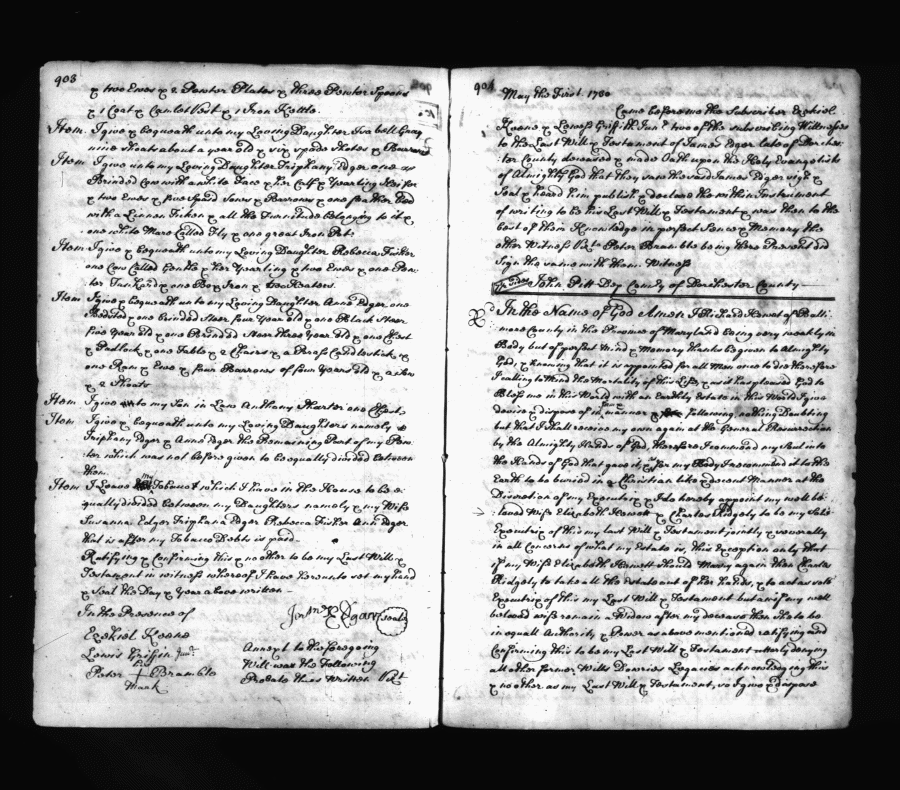 903
& two Ewes & 2 Pewter Plates & three Pewter Spoons
& 1 Coat & Camlet Vest & 1 Iron Kettle.
Item I give & bequeath unto my Loving Daughter Isabell Gray
nine Shoats about a year old & six spade Shoats & Barrows
Item I give unto my Loving Daughter Triphany Edger one
Brinded Cow with a white Face & her Calf & Yearling Heifer
& two Ewes & five Spaid Sows & Barrows & one feather Bed
with a Linnen Ticken & all the Furniture Belonging to it &
one white Mare Called Fly & one great Iron Pot.
Item I give & bequeath unto my Loving Daughter Rebecca Fisher
one Cow Called Gentle & her Yearling & two Ewes & one Pew-
ter Tankard & one Box Iron & Heaters.
Item I give & bequeath unto my Loving Daughter Anne Edger one
Bedstead & one Brinded Steer four Year old & one Black Steer
five Year old & one Brinded Steer three Year old & one Chest
& Padlock & one Table & 2 Chairs & a Brass Candlestick &
one Ram & Ewe & four Barrows of four Years old & a Sow
& 2 Shoats
Item I give to my Son in Law Anthony one Chest
Item I give & bequeath unto my Loving Daughters namely
Triphany Edger & Anne Edger the Remaining Part of my Pew-
ter which was not before given to be equally divided between
them.
Item I Leave my Tobacco which I have in the House to be e-
qually divided between my Daughters namely & my Wife
Susanna Edger Triphana Edger Rebecca Fisher Ann Edger
that is after my Tobacco Debts is paid
Ratifying & Confirming this & no other to be my Last Will &
Testament in witness whereof I have hereunto set my hand
& Seal the Day & Year above written
In the Presence of
Ezekiel Keene
Lewis Griffin Junr.
Peter his Bramble
mark
James Edgar Seal
Annext to the foregoing
Will was the Following
Probate thus Written Vizt
904
May the First. 1730
Came before me the Subscriber Ezekiel
Keene & Lewis Griffith Junr. two of the subscribing Witnesses
to the Last Will & Testament of James Edger late of Dorches-
ter County deceased & made Oath upon the Holy Evangelists
of Almighty God that they saw the said James Edger sign &
Seal & heard him publish & declare the within Instrument
of writing to be his Last Will & Testament & was then to the
best of them Knowledge in perfect Sence & Memory the
other Witness Vizt. Peter Bramble being there Present did
Sign the same with them. Witness
John Pitt Dep Comry of Dorchester County
In the Name of God Amen I Richard Hewet of Balti-
more County in the Province of Maryland being very weakly in
Body but of perfect Mind & Memory thanks be given to Almighty
God, & knowing that it is appointed for all Men once to die therefore
I calling to Mind the Mortality of this Life, & as it has pleased God to
Bless me in this World with an Earthly Estate in this World I give
devise & dispose of in manner & following, nothing Doubting
but that I shall receive my own again at the General Resurrection
by the Almighty Hands of God, therefore I commend my Soul into
the Hands of God that gave it, as for my Body I recommend it to the
Earth to be buried in a Christian like & decent Manner at the
Discretion of my Executrix & I do hereby appoint my well be-
loved Wife Elizabeth Hewet & Charles Ridgely to be my Sole
Executrix of this my last Will & Testament jointly & severally
in all Concerns of what my Estate is, this Exception only that
if my Wife Elizabeth Hewett should Marry again then Charles
Ridgely to take all the Estate out of her hands, & to act as sole
Executrix of this my Last Will & Testament but and if my well
beloved wife remain a Widow after my decease then she to be
in equall Authority & Power as above mentioned ratifying and
Confirming this to be my Last Will & Testament utterly denying
all other former Wills Dowries Legacies acknowledging this
& no other as my Last Will & Testament, so I give & dispose